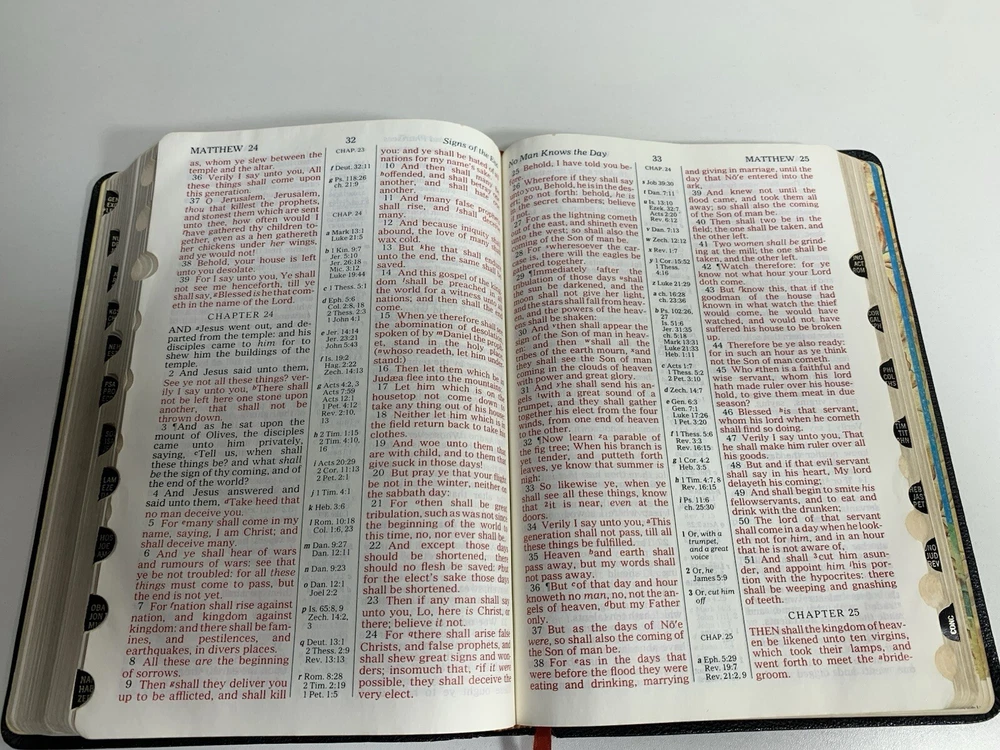 MATTHEW 24
32
Signs of the
as, whom ye slew between the
temple and the altar.
36 Verily I say unto you, All
these things shall come upon
this generation.
37 O Jerusalem, Jerusalem,
thou that killest the prophets,
and stonest them which are sent
unto thee, how often would I
have gathered thy children to-
gether, even as a hen gathereth
her chickens under her wings,
and ye would not!
38 Behold, your house is left
unto you desolate.
39 For I say unto you, Ye shall
not see me henceforth, till ye
shall say, Blessed is he that com-
eth in the name of the Lord.
CHAPTER 24
AND Jesus went out, and de-
parted from the temple: and his
disciples came to him for to
shew him the buildings of the
temple.
2 And Jesus said unto them,
See ye not all these things? ver-
ily I say unto you, There shall
not be left here one stone upon
another, that shall not be
thrown down.
3 ¶And as he sat upon the
mount of Olives, the disciples
came unto him privately,
saying, Tell us, when shall
these things be? and what shall
be the sign of thy coming, and of
the end of the world?
4 And Jesus answered and
said unto them, Take heed that
no man deceive you.
5 For many shall come in my
name, saying, I am Christ; and
shall deceive many.
6 And ye shall hear of wars
and rumours of wars: see that
ye be not troubled: for all these
things must come to pass, but
the end is not yet.
7 For nation shall rise against
nation, and kingdom against
kingdom: and there shall be fam-
ines, and pestilences, and
earthquakes, in divers places.
8 All these are the beginning
of sorrows.
9 Then shall they deliver you
up to be afflicted, and shall kill
CHAP. 23
f Deut. 32:11
g Ps. 118:26
ch. 21:9
CHAP. 24
a Mark 13:1
Luke 21:5
b 1 Kin. 9:7
Jer. 5:10
Jer. 26:18
Mic. 3:12
Luke 19:44
c 1 Thess. 5:1
d Eph. 5:6
Col. 2:8, 18
2 Thess. 2:3
1 John 4:1
e Jer. 14:14
Jer. 23:21
John 5:43
f Is. 19:2
Hag. 2:22
Zech. 14:13
g Acts 4:2, 3
Acts 7:59
Acts 12:1
1 Pet. 4:12
Rev. 2:10,
13
h 2 Tim. 1:15
2 Tim. 4:10,
16
i Acts 20:29
2 Cor. 11:13
2 Pet. 2:1
j 1 Tim. 4:1
k Heb. 3:6
l Rom. 10:18
Col. 1:6, 23
m Dan. 9:27
Dan. 12:11
n Dan. 9:23
o Dan. 12:1
Joel 2:2
p Is. 65:8, 9
Zech. 14:2,
3
q Deut. 13:1
2 Thess. 2:9
Rev. 13:13
r Rom. 8:28
2 Tim. 2:19
1 Pet. 1:5
you: and ye shall be hated
nations for my name's sake
10 And then shall
offended, and shall betray
another, and shall
another.
11 And many false
shall rise, and shall
many.
12 And because iniquity
abound, the love of many
wax cold.
13 But he that shall
unto the end, the same shall
saved.
14 And this gospel of the
dom shall be preached in
the world for a witness unto
nations; and then shall the
come.
15 When ye therefore shall
the abomination of desolation
spoken of by Daniel the
et, stand in the holy place
(whoso readeth, let him
stand:)
16 Then let them which be
Judaea flee into the mountains
17 Let him which is on the
housetop not come down
take any thing out of his house
18 Neither let him which is
the field return back to take his
clothes.
19 And woe unto them that
are with child, and to them that
give suck in those days!
20 But pray ye that your flight
be not in the winter, neither on
the sabbath day:
21 For then shall be great
tribulation, such as was not since
the beginning of the world to
this time, no, nor ever shall be.
22 And except those days
should be shortened, there
should no flesh be saved: but
for the elect's sake those days
shall be shortened.
23 Then if any man shall say
unto you, Lo, here is Christ, or
there; believe it not.
24 For there shall arise false
Christs, and false prophets, and
shall shew great signs and won-
ders; insomuch that, if it were
possible, they shall deceive the
very elect.
No Man Knows the Day
33
MATTHEW 25
25 Behold, I have told you be-
Wherefore if they shall say
you, Behold, he is in the des-
go not forth: behold, he is
the secret chambers; believe
not.
For as the lightning cometh
out of the east, and shineth even
unto the west; so shall also the
coming of the Son of man be.
28 For wheresoever the car-
case is, there will the eagles be
gathered together.
29 Immediately after the
tribulation of those days shall
the sun be darkened, and the
moon shall not give her light,
and the stars shall fall from heav-
en, and the powers of the heav-
ens shall be shaken:
30 And then shall appear the
sign of the Son of man in heav-
en: and then shall all the
tribes of the earth mourn, and
they shall see the Son of man
coming in the clouds of heaven
with power and great glory.
31 And he shall send his an-
gels with a great sound of a
trumpet, and they shall gather
together his elect from the four
winds, from one end of heaven
to the other.
32 ¶Now learn a parable of
the fig tree; When his branch is
yet tender, and putteth forth
leaves, ye know that summer is
nigh:
33 So likewise ye, when ye
shall see all these things, know
that it is near, even at the
doors.
34 Verily I say unto you, This
generation shall not pass, till all
these things be fulfilled.
35 Heaven and earth shall
pass away, but my words shall
not pass away.
36 ¶But of that day and hour
knoweth no man, no, not the an-
gels of heaven, but my Father
only.
37 But as the days of Nō'e
were, so shall also the coming of
the Son of man be.
38 For as in the days that
were before the flood they were
eating and drinking, marrying
CHAP. 24
s Job 39:30
t Dan. 7:11
u Is. 13:10
Ezek. 32:7
Acts 2:20
Rev. 6:12
v Dan. 7:13
w Zech. 12:12
x Rev. 1:7
y 1 Cor. 15:52
1 Thess.
4:16
z Luke 21:29
a ch. 16:28
ch. 23:36
b Ps. 102:26,
27
Is. 51:6
Jer. 31:35
ch. 5:18
Mark 13:31
Luke 21:33
Heb. 1:11
c Acts 1:7
1 Thess. 5:2
2 Pet. 3:10
d Zech. 14:7
e Gen. 6:3
Gen. 7:1
Luke 17:26
1 Pet. 3:20
f 1 Thess. 5:6
Rev. 3:3
Rev. 16:15
g 1 Cor. 4:2
Heb. 3:5
h 1 Tim. 4:7, 8
Rev. 16:15
i Ps. 11:6
ch. 25:30
1 Or, with a
trumpet,
and a great
voice
2 Or, he
James 5:9
3 Or, cut him
off
CHAP. 25
a Eph. 5:29
Rev. 19:7
Rev. 21:2, 9
and giving in marriage, until the
day that Nō'e entered into the
ark,
39 And knew not until the
flood came, and took them all
away; so shall also the coming
of the Son of man be.
40 Then shall two be in the
field; the one shall be taken, and
the other left.
41 Two women shall be grind-
ing at the mill; the one shall be
taken, and the other left.
42 ¶Watch therefore: for ye
know not what hour your Lord
doth come.
43 But know this, that if the
goodman of the house had
known in what watch the thief
would come, he would have
watched, and would not have
suffered his house to be broken
up.
44 Therefore be ye also ready:
for in such an hour as ye think
not the Son of man cometh.
45 Who then is a faithful and
wise servant, whom his lord
hath made ruler over his house-
hold, to give them meat in due
season?
46 Blessed is that servant,
whom his lord when he cometh
shall find so doing.
47 Verily I say unto you, That
he shall make him ruler over all
his goods.
48 But and if that evil servant
shall say in his heart, My lord
delayeth his coming;
49 And shall begin to smite his
fellowservants, and to eat and
drink with the drunken;
50 The lord of that servant
shall come in a day when he look-
eth not for him, and in an hour
that he is not aware of,
51 And shall cut him asun-
der, and appoint him his por-
tion with the hypocrites: there
shall be weeping and gnashing
of teeth.
CHAPTER 25
THEN shall the kingdom of heav-
en be likened unto ten virgins,
which took their lamps, and
went forth to meet the bride-
groom.
JNO
ACT
ROM
TIM
TIT
CONC